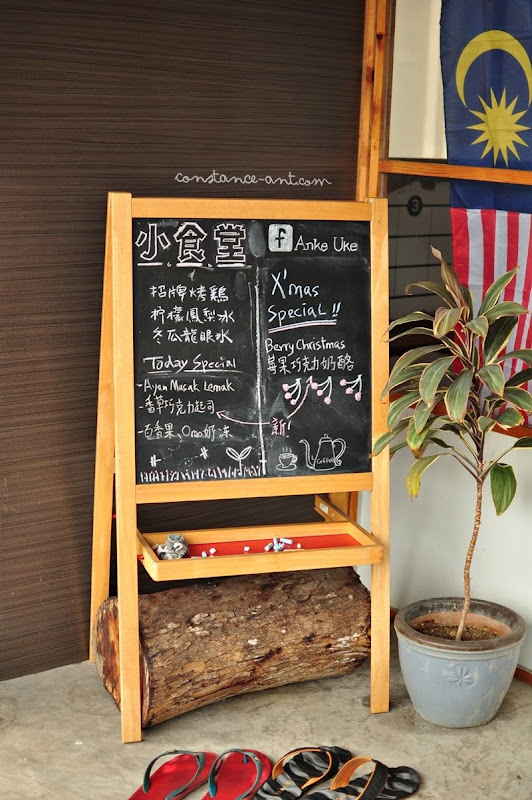 constance-ant.com
小食堂
招牌烤鷄
柠檬鳳梨水
冬瓜龍眼水
Today Special
- Ayam Masak Lemak
- 香草巧克力起司
- 百香果、Oreo奶冻
f Anke Uke
X'mas
Special!!
Berry Christmas
莓果巧克力奶酪
新!
COFFEE
3